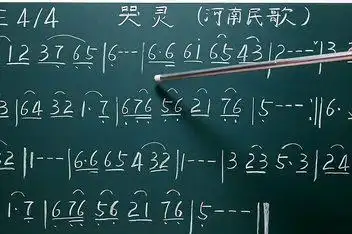 4/4 哭灵 (河南民歌)
12 37 65 | 6--- | 6·6 61 65 43 | 2--- | 3
3 | 64 32 1·7 | 676 56 21 76 | 5--- :‖ 6·
32 | 1--- | 6·6 65 4 32 | 1--- | 3 23 5·3 | 24
1·7 | 676 56 21 76 | 5---‖